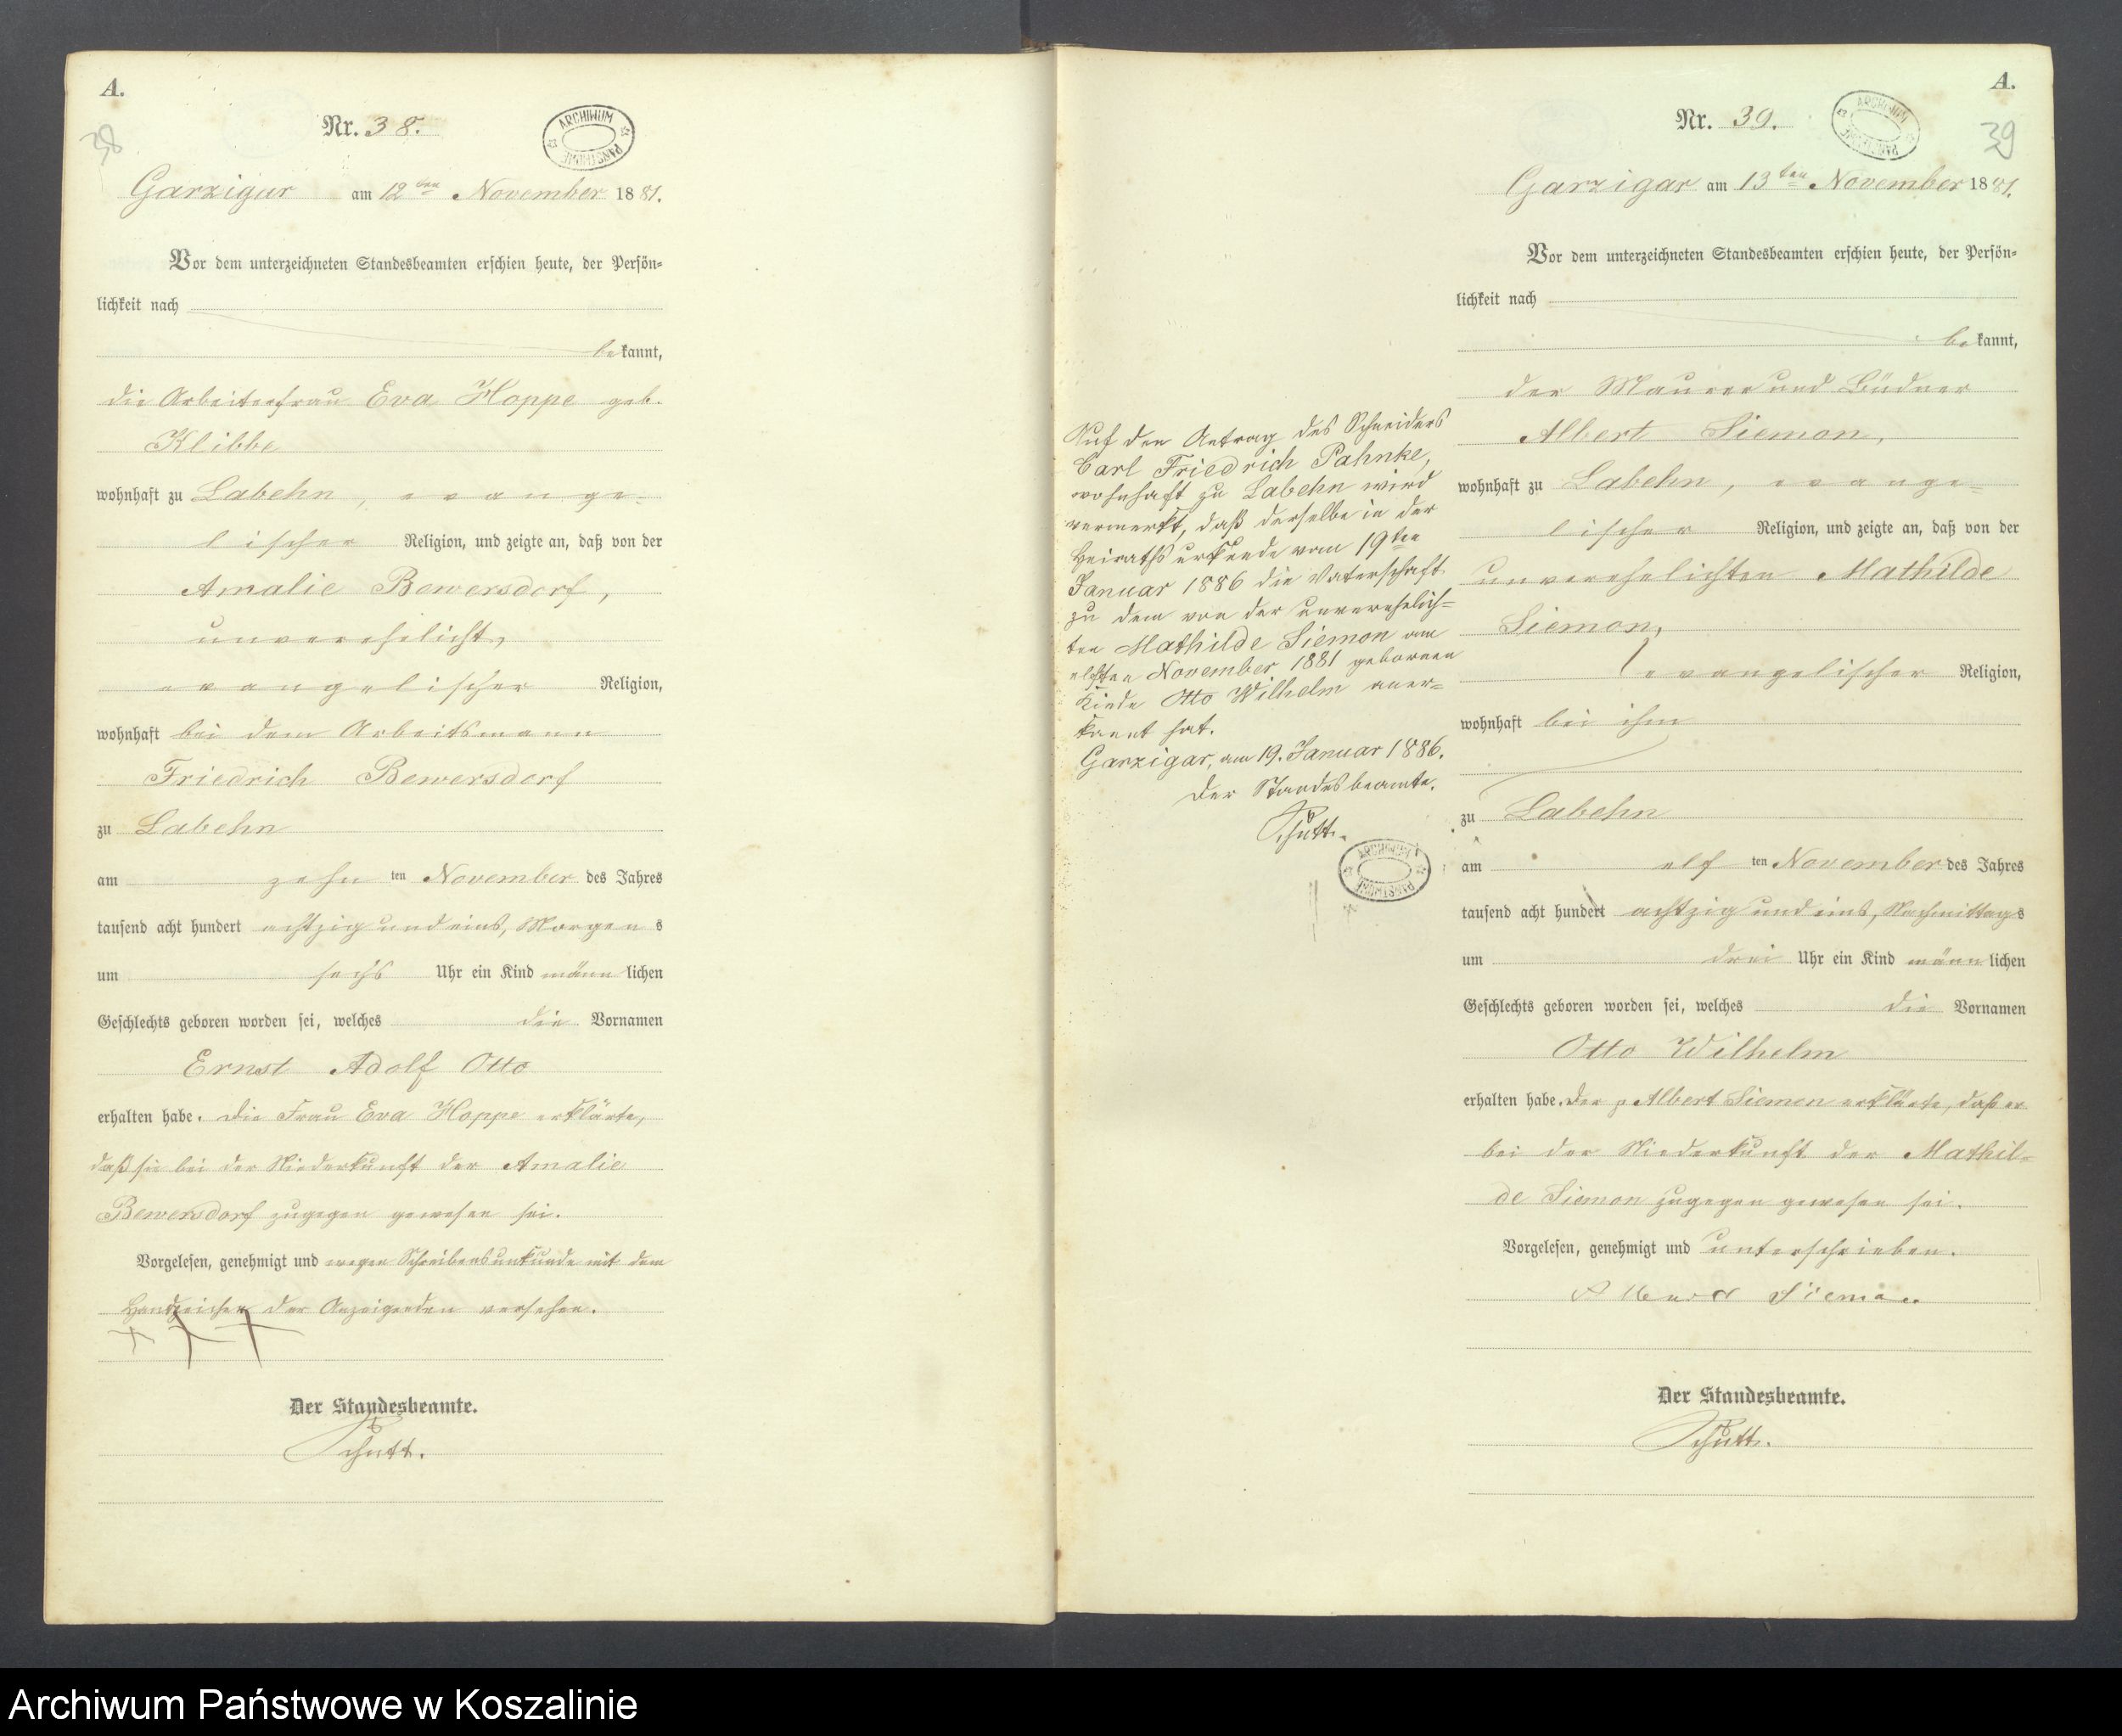 A.
38
Nr. 38.
ARCHIWUM PAŃSTWOWE
Garzigar am 12ten November 1881.
Vor dem unterzeichneten Standesbeamten erschien heute, der Persön-
lichkeit nach
bekannt,
die Arbeiterfrau Eva Hoppe geb.
Klibbe
wohnhaft zu Labehn, evange-
lischer Religion, und zeigte an, daß von der
Amalie Bewersdorf,
unverehelicht,
evangelischer Religion,
wohnhaft bei dem Arbeitsmann
Friedrich Bewersdorf
zu Labehn
am zehn ten November des Jahres
tausend acht hundert achtzig und eins, Morgens
um sechs Uhr ein Kind männlichen
Geschlechts geboren worden sei, welches die Vornamen
Ernst Adolf Otto
erhalten habe. Die Frau Eva Hoppe erklärte,
daß sie bei der Niederkunft der Amalie
Bewersdorf zugegen gewesen sei.
Vorgelesen, genehmigt und wegen Schreibensunkunde mit dem
Handzeichen der Anzeigenden versehen.
+++
Der Standesbeamte.
Schütt.
Auf den Antrag des Schneiders
Carl Friedrich Pahnke,
wohnhaft zu Labehn wird
vermerkt, daß derselbe in der
Heirathsurkunde vom 19ten
Januar 1886 die Vaterschaft
zu dem von der unverehelich=
ten Mathilde Siemon am
elften November 1881 gebornen
Kinde Otto Wilhelm aner=
kannt hat.
Garzigar, am 19. Januar 1886.
Der Standesbeamte.
Schütt.
ARCHIWUM PAŃSTWOWE
A.
39
Nr. 39.
ARCHIWUM PAŃSTWOWE
Garzigar am 13ten November 1881.
Vor dem unterzeichneten Standesbeamten erschien heute, der Persön-
lichkeit nach
bekannt,
der Maurer und Büdner
Albert Siemon,
wohnhaft zu Labehn, evange=
lischer Religion, und zeigte an, daß von der
unverehelichten Mathilde
Siemon,
evangelischer Religion,
wohnhaft bei ihm
zu Labehn
am elf ten November des Jahres
tausend acht hundert achtzig und eins, Nachmittags
um drei Uhr ein Kind männlichen
Geschlechts geboren worden sei, welches die Vornamen
Otto Wilhelm
erhalten habe. Der p Albert Siemon erklärte, daß er
bei der Niederkunft der Mathil=
de Siemon zugegen gewesen sei.
Vorgelesen, genehmigt und unterschrieben.
Albert Siemon
Der Standesbeamte.
Schütt.
Archiwum Państwowe w Koszalinie